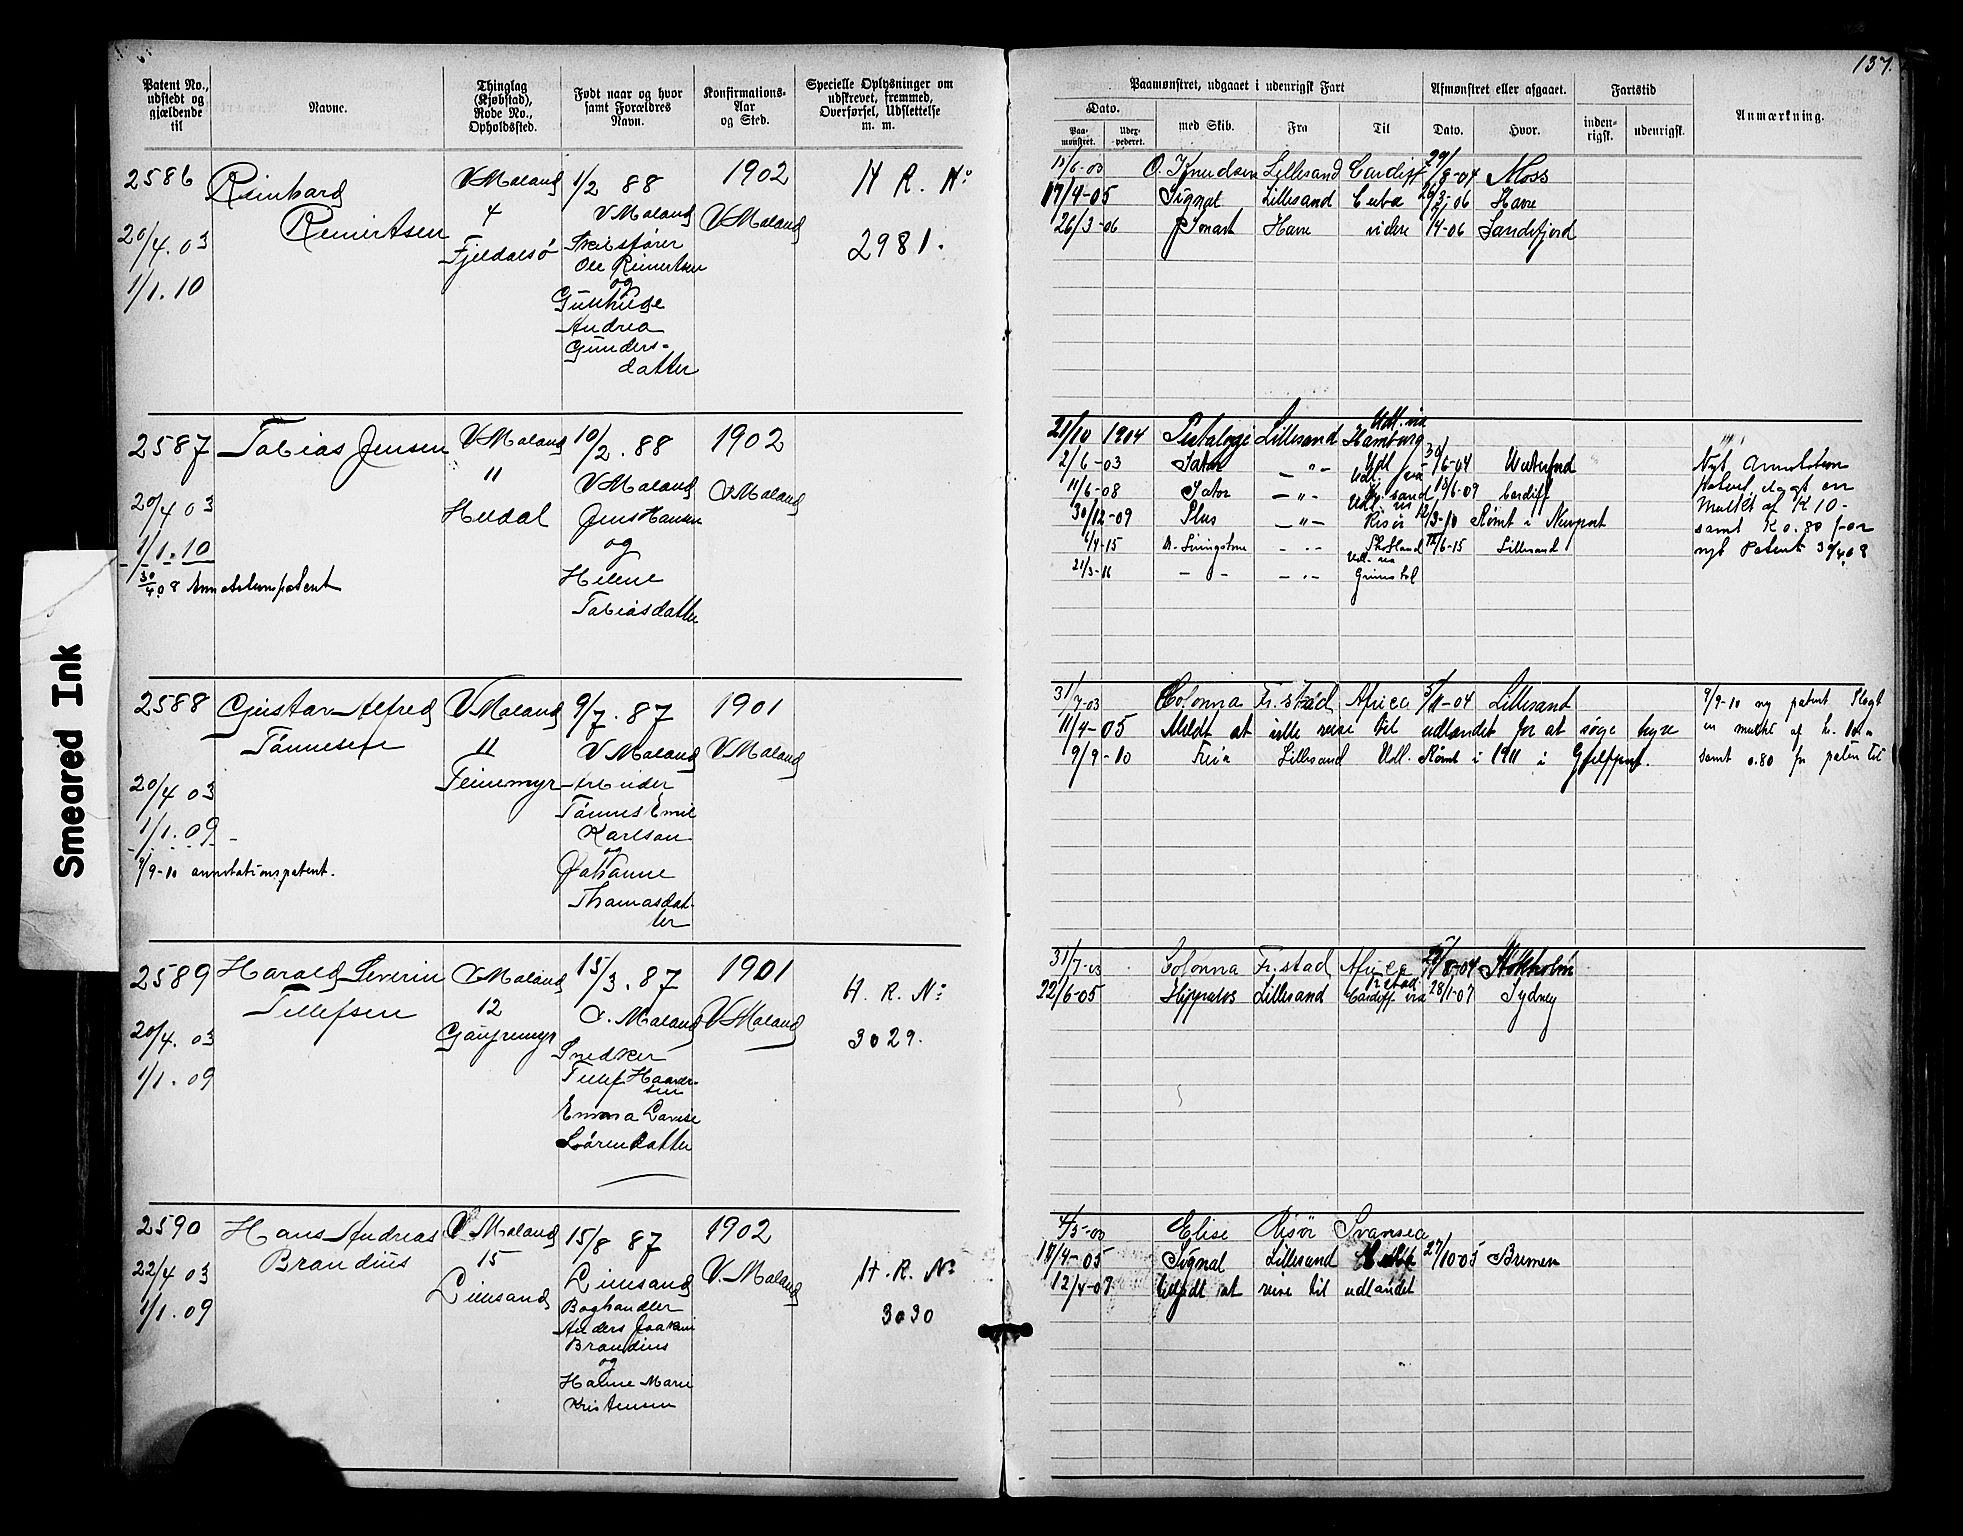 137.
Patent No., udstedt og gjældende til
Navne.
Thinglag (Kjøbstad), Rode No., Opholdssted.
Født naar og hvor samt Forældres Navn.
Konfirmations-Aar og Sted.
Specielle Oplysninger om udskrevet, fremmed, Overførsel, Udslettelse m. m.
Paamønstret, udgaaet i udenrigsk Fart
Afmønstret eller afgaaet.
Fartstid
Anmærkning.
Dato.
Paa-mønstret.
Udex-pederet.
med Skib.
Fra
Til
Dato.
Hvor.
inden-rigsk.
udenrigsk.
2586
Reinhard
Reinertsen
20/4.03
1/1.10
V Moland
4
Fjeldalsø
1/2 88
V Moland
Skibsfører
Ole Reinertsen
og
Gunhilde
Andrea
Gunders-
datter
1902
V Moland
H R. No
2981.
O. Knudsen Lillesand Cardiff Moss
17/4-05 Signal Lillesand Cuba Havre
26/3-06 Havre videre Sandefjord
2587
Tobias Jensen
20/4 03
1/1.10
30/4 08 Annotationspatent
V Moland
11
Hedal
10/2.88
V Moland
Jens Hansen
og
Helene
Tobiasdatter
1902
V Moland
21/10 1904 Pestalozzi Lillesand Udl. via Hamburg
2/6-03 Sator - " - Udl 30/6-04 Waterford
11/6-08 Sator - " - Udl. via Kr. sand Cardiff
30/12-09 Plus - " - Udl. via Risør 12/3-10 Rømt i Newport
6/4-15 D. Livingstone - " - Skotland 12/6-15 Lillesand
21/3-16 - " - - " - Udl. via Grimstad
Nyt Annotation
patent ilagt en
Mulkt af K 10-
samt K 0.80 for
nyt Patent 30/4 08
2588
Gustav Alfred
Tønnesen
20/4 03
1/1.09
9/9-10 annotationspatent.
V Moland
11
Teinemyr
9/7.87
V Moland
Arbeider
Tønnes Emil
Karlson
og
Johanne
Thomasdat-
ter
1901
V Moland
31/7-03 Colonna Fr.stad Africa 5/11-04 Lillesand
11/4-05 Meldt at ville reise til udlandet for at søge hyre
9/9-10 Freia Lillesand Udl. Rømt i 1911 i Gulfport.
9/9-10 ny patent Ilagt
en mulkt af kr. 10.-
samt 0.80 for patentet
2589
Harald Severin
Tellefsen
20/4.03
1/1.09
V Moland
12
15/3.87
V. Moland
Snedker
Tellef Haavor-
sen
Emma Lovise
Sørendatter
1901
V Moland
H. R. No
3029.
31/7-03 Colonna Fr.stad Africa Stokholm
22/6-05 Hippalos Lillesand Cardiff via Fr.stad 28/1-07 Sydney
2590
Hans Andreas
Brandius
22/4 03
1/1.09
V Moland
15
Lillesand
15/8 87
Lillesand
Boghandler
Anders Joakim
Brandius
og
Hanne Marie
Kristensen
1902
V. Moland
H. R. No
3030
4/5-03 Elise Risør Svansea
18/4-05 Signal Lillesand 27/10-05 Bremen
12/4-07 at reise til udlandet
Smeared Ink